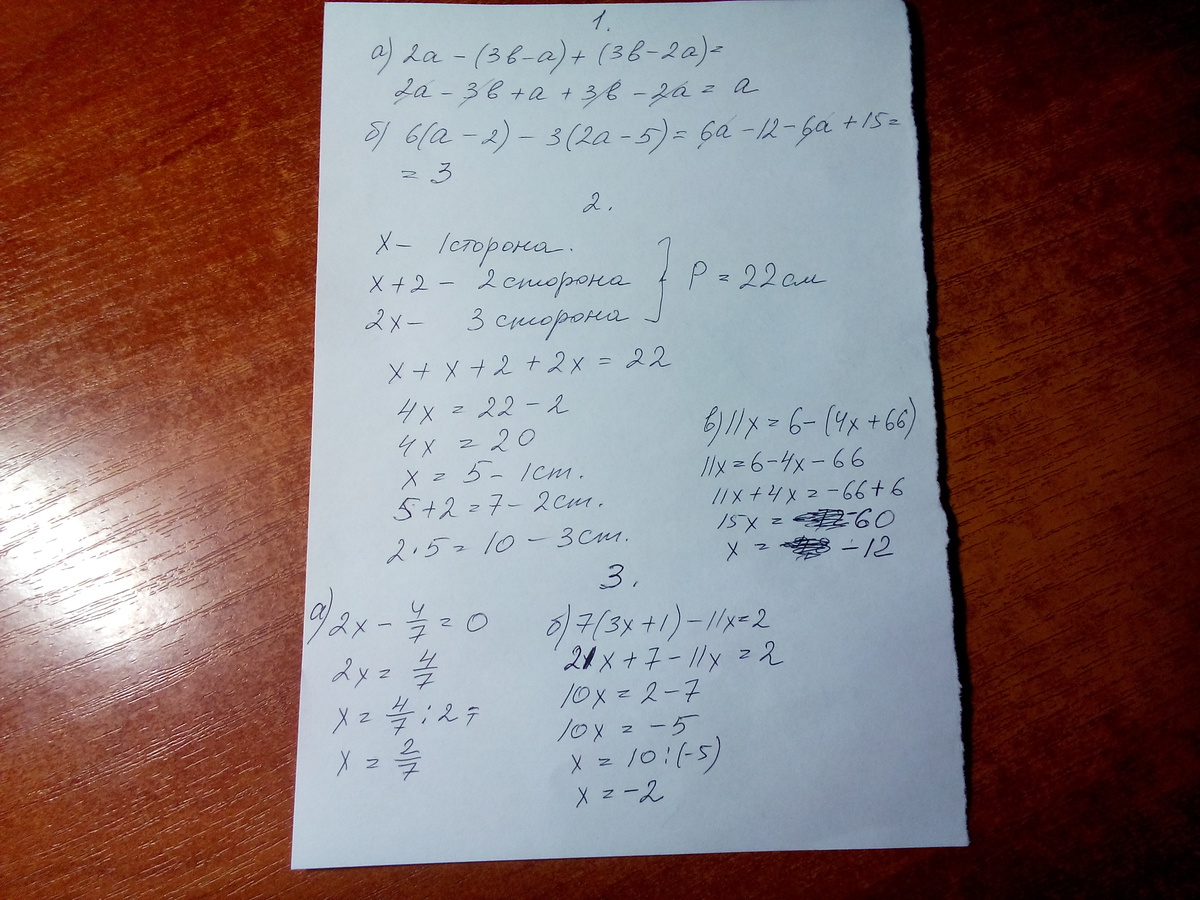 1.
а) 2a - (3в - a) + (3в - 2a) =
2a - 3в + a + 3в - 2a = a
б) 6(a - 2) - 3(2a - 5) = 6a - 12 - 6a + 15 =
= 3
2.
x - 1 сторона.
x + 2 - 2 сторона
2x - 3 сторона
P = 22 см
x + x + 2 + 2x = 22
4x = 22 - 2
4x = 20
x = 5 - 1 ст.
5 + 2 = 7 - 2 ст.
2 · 5 = 10 - 3 ст.
в) 11x = 6 - (4x + 66)
11x = 6 - 4x - 66
11x + 4x = -66 + 6
15x = -60
x = -12
3.
а) 2x - 4/7 = 0
2x = 4/7
x = 4/7 : 2 =
x = 2/7
б) 7(3x + 1) - 11x = 2
21x + 7 - 11x = 2
10x = 2 - 7
10x = -5
x = 10 : (-5)
x = -2